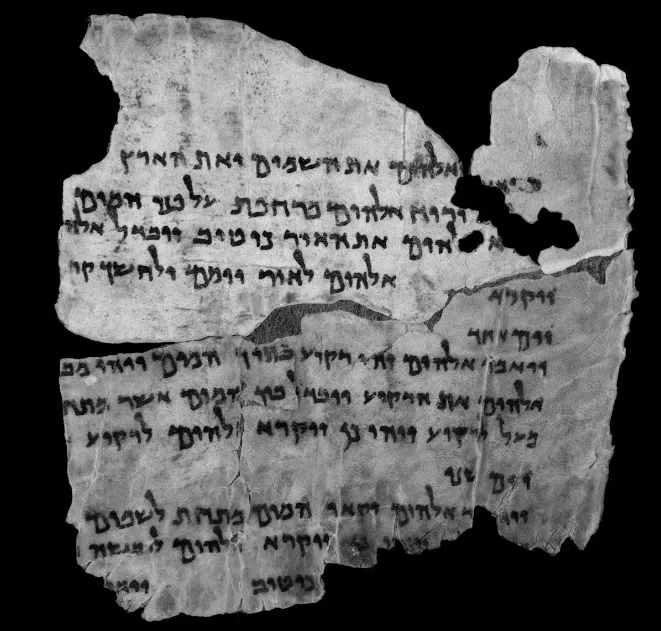 אלהים את השמים ואת הארץ
ורוח אלהים מרחפת על פני המים
להים את האור כי טוב ויבדל אלהי
ויקרא אלהים לאור יומם ולחשך קר
יום אחד
ויאמר אלהים יהי רקיע בתוך המים ויהי מב
אלהים את הרקיע ויבדל בין המים אשר מתח
מעל לרקיע ויהי כן ויקרא אלהים לרקיע
יום שני
אלהים יקאו המים מתחת לשמים
ויקרא אלהים ליבשה
כי טוב